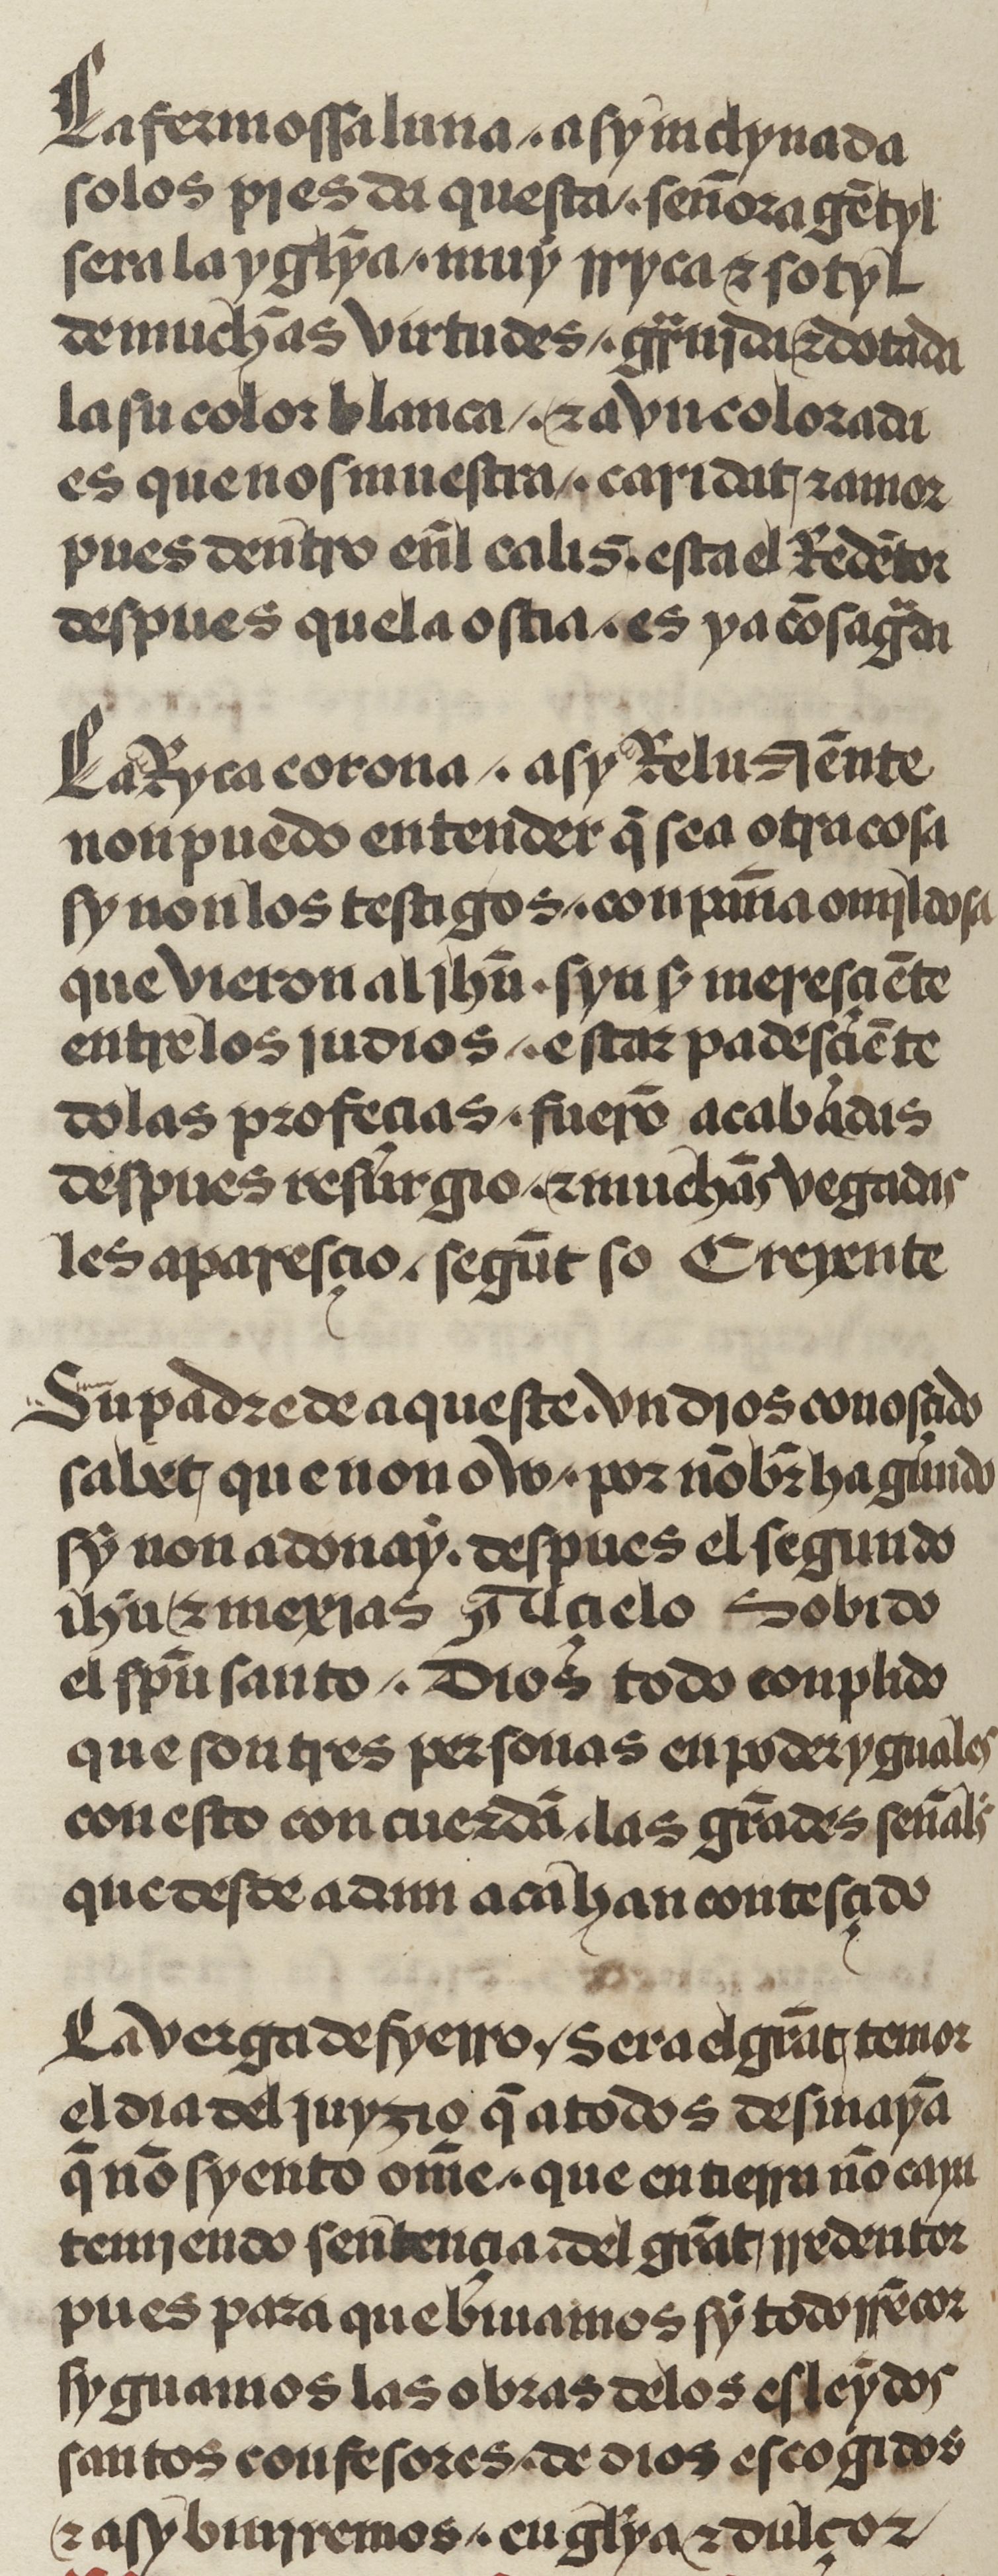 La fermossa luna ·/· asy inclynada
solos pies da questa ·/· señora gẽtyl
sera la yglȳa ·/· muy rryca & sotyl
de muchas virtudes ·/· grãnida & dotada
la su color blanca ·/· & avn colorada
es que nos muestra ·/· caridat & amor
pues dentro eñl calis · esta el Redẽtor
despues quela ostia ·/· es ya cõsagᵃda
La Ryca corona ·/· asy Reluzjẽnte
non puedo entender q̃ sea otra cosa
sy non los testigos ·/· conpam̃a omjldosa
que vieron al jhũ · syn s̃ meresçiẽte
entre los judios ·/· estar padesçiẽte
do las profecias ·/· fuerõ acabadas
despues resurgio ·/· & muchas vegadas
les aparesçio ·/· segũt so Creyente
Su padre de aqueste · vn dios conosçido
sabet que non ovo ·/· por nõbr̃ ha guñido
sy non adonay · despues el segundo
ihũ & mexias q̃l çielo Sobido
el spũ santo ·/· Dios todo conplido
que son tres personas en poder yguales
con esto concuerdã ·/· las grãdes señals̃
que desde adam aca han contesçido
La verga de fyerro ·/ Sera el grãt temor
el dia del juyzio q̃ a todos desmaya
q̃ nõ syento om̃e ·/· que en tierra nõ caya
temjendo sentençia ·/· del grãt rredentor
pues para que biuamos sy todo rrẽcor
syguamos las obras delos esleydos
santos confesores ·/· de dios escogidos
& asy biuirremos ·/· en glȳa & dulçor